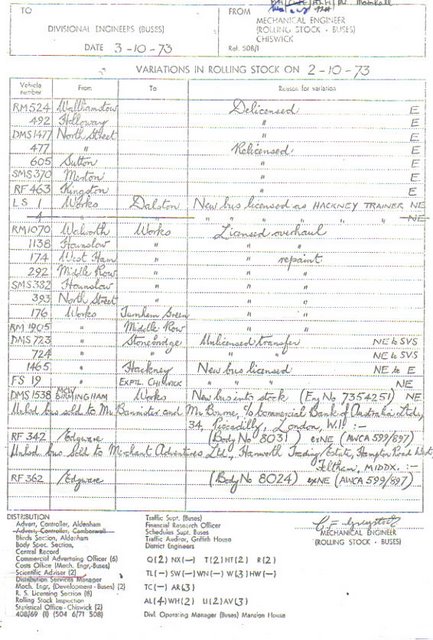 TO
DIVISIONAL ENGINEERS (BUSES)
DATE 3-10-73
FROM
MECHANICAL ENGINEER
(ROLLING STOCK - BUSES)
CHISWICK
Ref. 508/1
VARIATIONS IN ROLLING STOCK ON 2-10-73
Vehicle number From To Reason for variation
RM524 Walthamstow Delicensed E
492 Holloway " E
DMS1477 North Street Relicensed E
477 " " E
605 Sutton " E
SMS370 Merton " E
RF463 Kingston " E
LS 1 Works Dalston New bus licensed as HACKNEY TRAINER NE
4 " " " " " " NE
RM1070 Walworth Works Licensed overhaul
1138 Hounslow " "
174 West Ham " repaint
292 Middle Row " "
SMS382 Hounslow " "
393 North Street " "
176 Works Turnham Green "
RM 1905 " Middle Row "
DMS723 " Stonebridge Unlicensed transfer NE to SVS
724 " " " NE to SVS
1465 " Hackney New bus licensed NE to E
FS 19 " EXPTL CHISWICK " " " NE
DMS1538 MCW BIRMINGHAM Works New bus into stock (Eng No 7354251) NE
Unlcd bus sold to Mr Bannister and Mr Bonner, c/o Commercial Bank of Australia Ltd,
34, Piccadilly, London, W.1 :-
RF 342 Edgware (Body No 8031) ex NE (AWCA 599/897)
Unlcd. bus sold to Merchant Adventures Ltd, Hanworth Trading Estate, Hampton Road West,
Feltham, MIDDX. :-
RF 362 Edgware (Body No 8024) ex NE (AWCA 599/897)
DISTRIBUTION
Advert. Controller, Aldenham
Advert. Controller, Camberwell
Blinds Section, Aldenham
Body Spec. Section,
Central Record
Commercial Advertising Officer (6)
Costs Office (Mech. Engr.-Buses)
Scientific Adviser (2)
Distribution Services Manager
Mech. Engr. (Development - Buses) (2)
R. S. Licensing Section (6)
Rolling Stock Inspection
Statistical Office - Chiswick (2)
408/69 (1) (504 6/71 508)
Traffic Supt. (Buses)
Financial Research Officer
Schedules Supt. Buses
Traffic Auditor, Griffith House
District Engineers
Q(2) NX(-) T(2) HT(2) R(2)
TL(-) SW(-) WN(-) W(3) HW(-)
TC(-) AR(3)
AL(4) WH(2) U(2) AV(3)
Divl. Operating Manager (Buses) Mansion House
MECHANICAL ENGINEER
(ROLLING STOCK - BUSES)